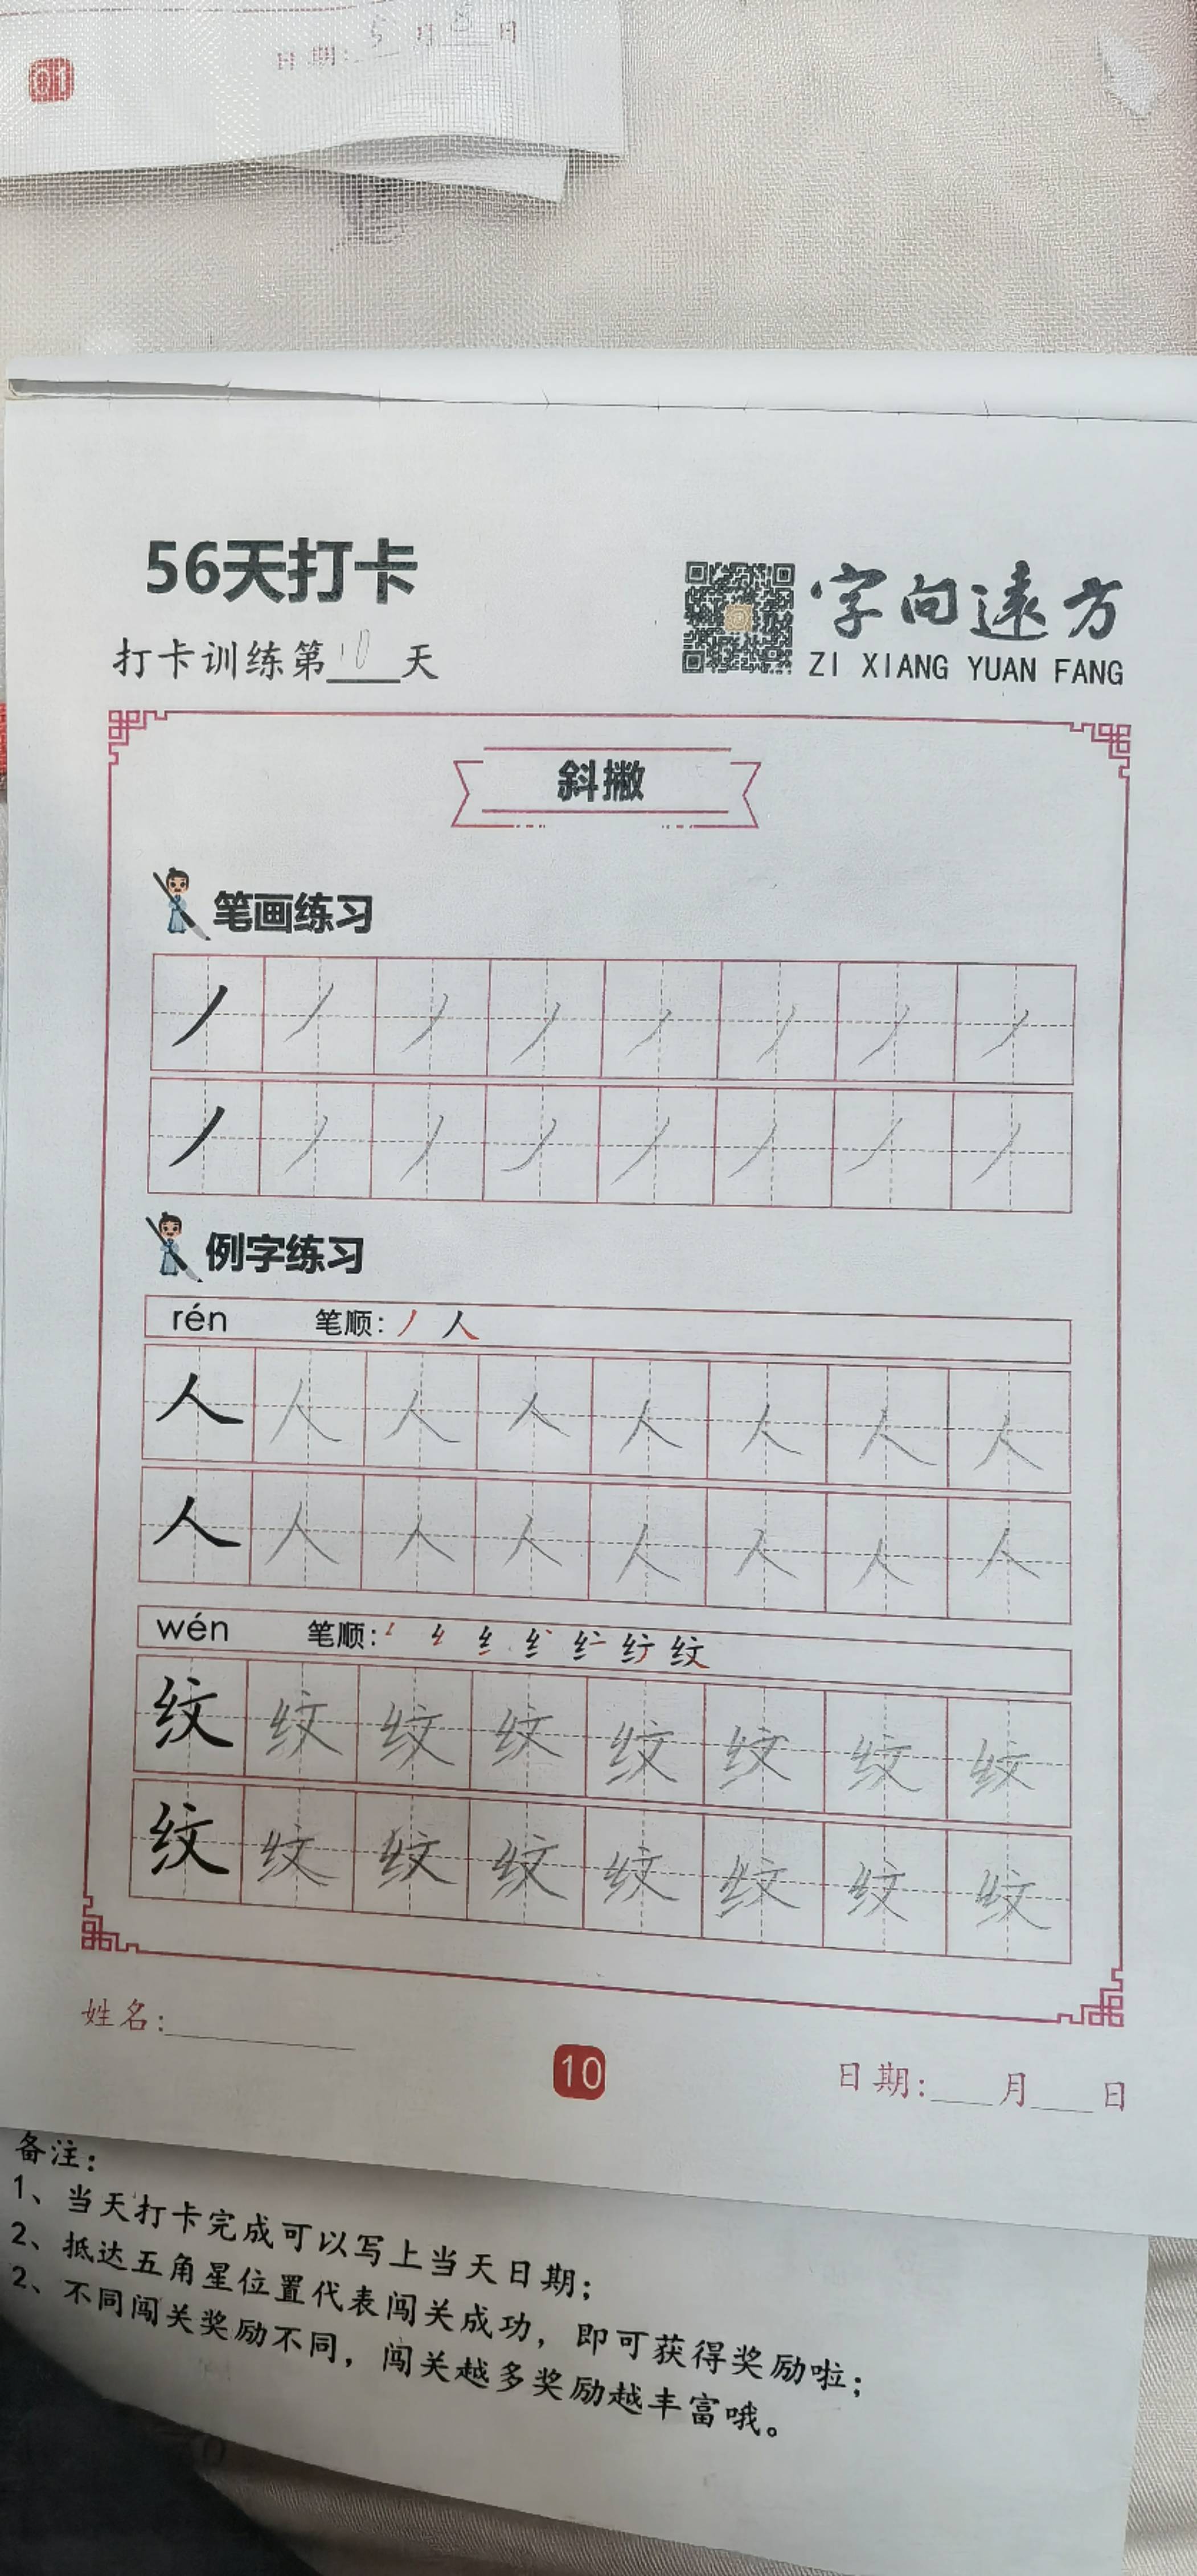 01
日期: 5 月 8 日
56天打卡
打卡训练第 10 天
字向遠方
ZI XIANG YUAN FANG
斜撇
笔画练习
丿 丿 丿 丿 丿 丿 丿 丿
丿 丿 丿 丿 丿 丿 丿 丿
例字练习
rén 笔顺: 丿 人
人 人 人 人 人 人 人 人
人 人 人 人 人 人 人 人
wén 笔顺:
纹
纹 纹 纹 纹 纹 纹 纹 纹
纹 纹 纹 纹 纹 纹 纹 纹
姓名:
10
日期: 月 日
备注:
1、当天打卡完成可以写上当天日期;
2、抵达五角星位置代表闯关成功，即可获得奖励啦;
2、不同闯关奖励不同，闯关越多奖励越丰富哦。